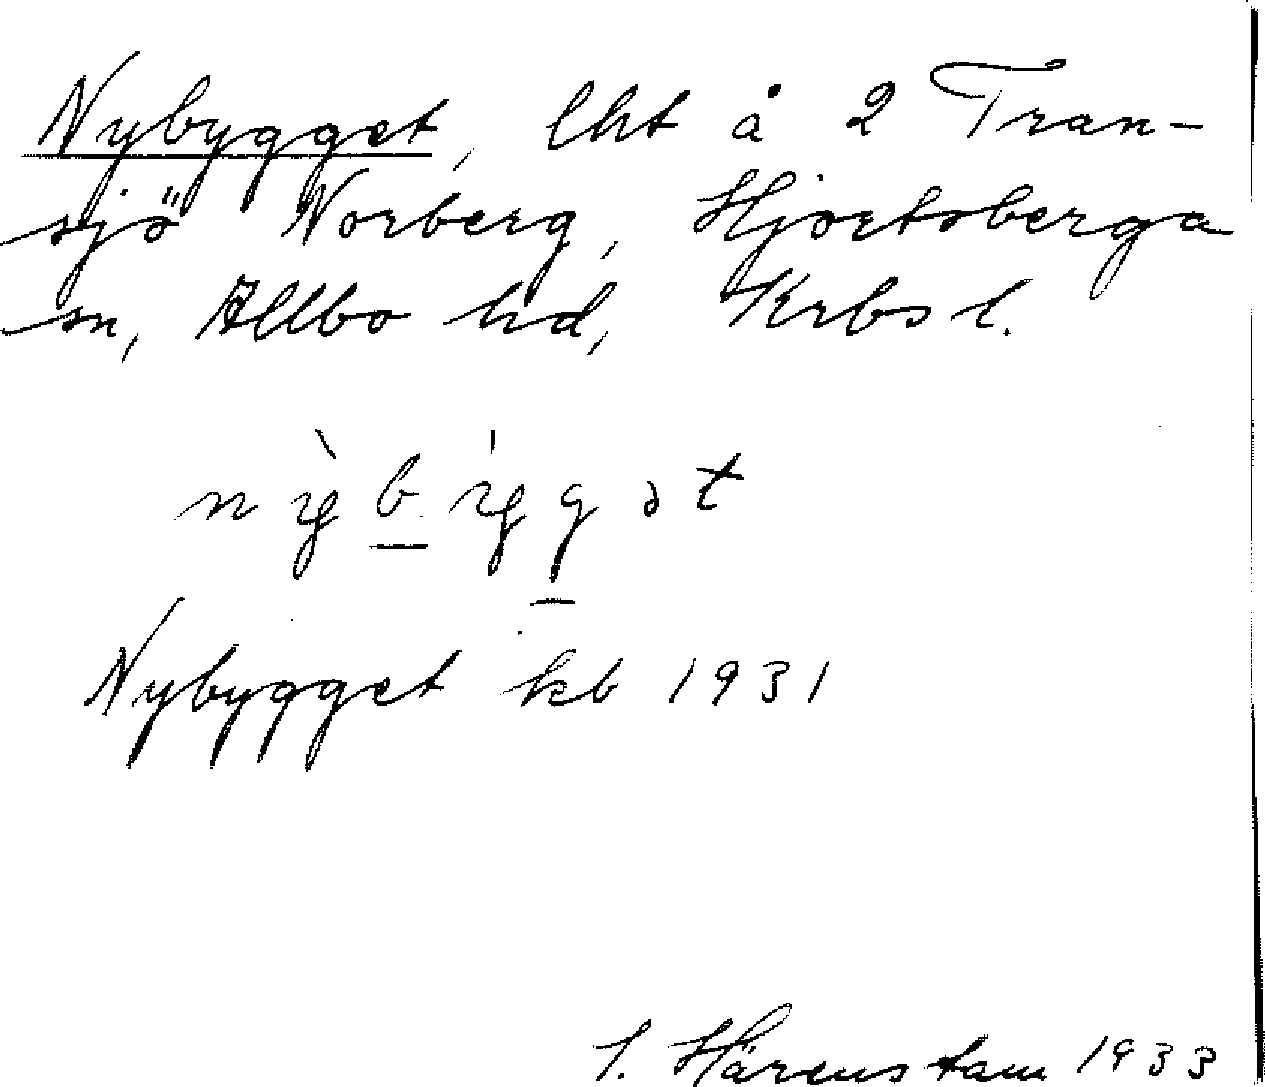 Nybygget, lht å 2 Tran-
sjö Norberg, Hjortsberga
sn, Allbo hd, Krbs l.
nỳbýgət
Nybygget kb 1931
I. Härenstam 1933